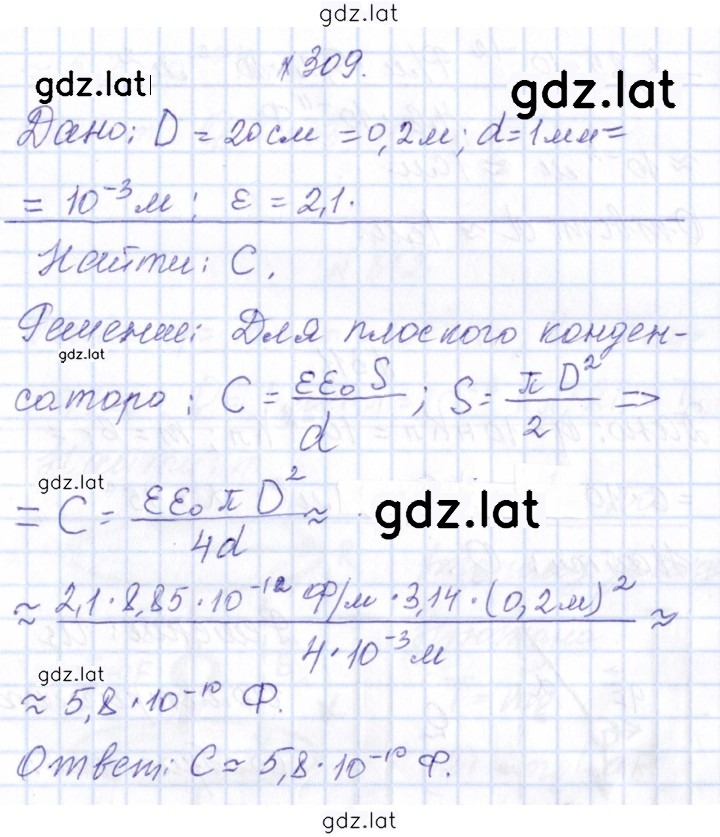 gdz.lat
№ 309.
gdz.lat gdz.lat
Дано: D = 20 см = 0,2 м; d = 1 мм =
= 10⁻³ м; ε = 2,1.
Найти: C.
Решение: Для плоского конден-
gdz.lat
сатора: C = εε₀S/d; S = πD²/2 =>
gdz.lat
= C = εε₀πD²/4d ≈
gdz.lat
≈ 2,1·8,85·10⁻¹² Ф/м·3,14·(0,2м)²/4·10⁻³ м ≈
gdz.lat
≈ 5,8·10⁻¹⁰ Ф.
Ответ: C ≈ 5,8·10⁻¹⁰ Ф.
gdz.lat